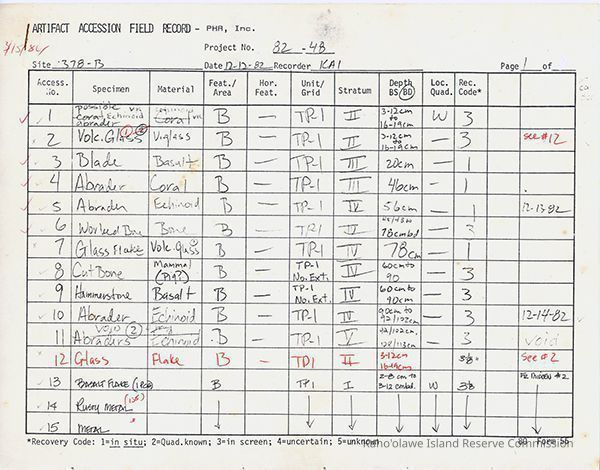 ARTIFACT ACCESSION FIELD RECORD - PHR, Inc.
3/15/86
Project No. 82-48
Site 378-B Date 12-13-82 Recorder KAI Page 1 of
Access. No. Specimen Material Feat./Area Hor. Feat. Unit/Grid Stratum Depth BS/BD Loc. Quad. Rec. Code*
1 possible coral Echinoid abrader Coral B — TP-1 II 3-12cm to 16-19cm W 3
2 Volc. Glass V.glass B — TP-1 II 3-12cm to 16-19cm — 3 see #12
3 Blade Basalt B — TP-1 III 20cm — 1
4 Abrader Coral B — TP-1 III 46cm — 1
5 Abrader Echinoid B — TP-1 IV 56cm — 1 12-13-82
6 Worked Bone Bone B — TP-1 IV 78cmbd — 3
7 Glass Flake Volc. glass B — TP-1 IV 78cm — 1
8 Cut Bone Mammal (Pig?) B — TP-1 No. Ext. IV 60cm to 90 — 3
9 Hammerstone Basalt B — TP-1 No. Ext. IV 60cm to 90cm — 3
10 Abrader Echinoid B — TP-1 IV 90cm to 92/102cm — 3 12-14-82
11 Abraders (2) void Echinoid B — TP-1 V 92/102cm — 3 void
12 Glass Flake B - TP1 II 3-12cm 16-19cm see #2
13 Basalt Flake B TP1 I 2-8 cm to 3-12 cmbd. W 3
14 Rusty metal
15 metal
*Recovery Code: 1=in situ; 2=Quad.known; 3=in screen; 4=uncertain; 5=unknown
80 Form 56
Kaho'olawe Island Reserve Commission